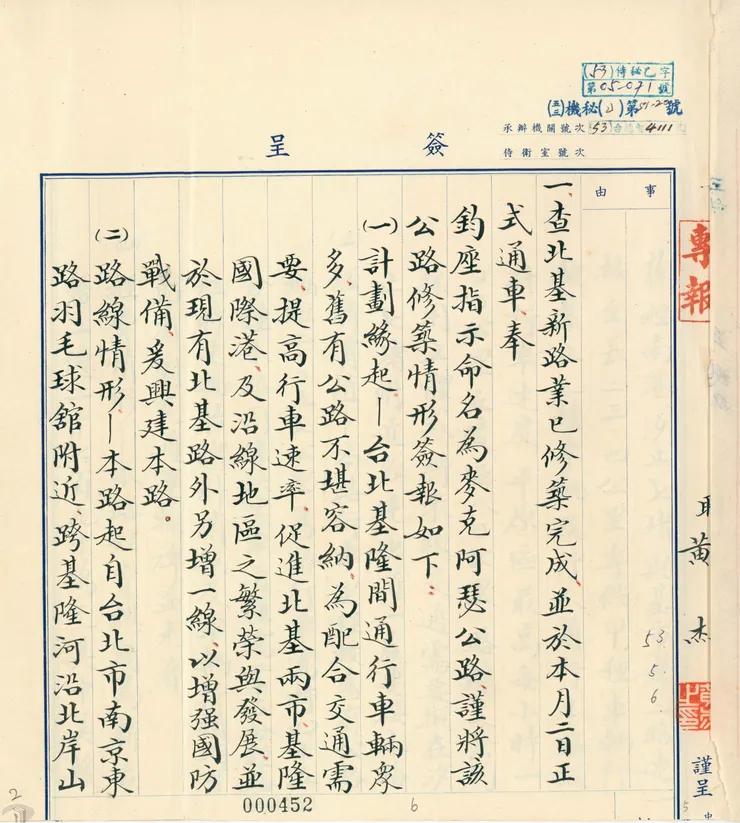 (53)侍秘己字
第05-071號
(五三)機秘(乙)第51-20號
承辦機關號次 53 4111
侍衛室號次
簽呈
事由
專報
一、查北基新路業已修築完成並於本月二日正
式通車、奉
鈞座指示命名為麥克阿瑟公路、謹將該
公路修築情形簽報如下：
(一)計劃緣起—台北基隆間通行車輛眾
多、舊有公路不堪容納、為配合交通需
要、提高行車速率、促進北基兩市、基隆
國際港、及沿線地區之繁榮與發展、並
於現有北基路外另增一線、以增强國防
戰備、爰興建本路。
(二)路線情形—本路起自台北市南京東
路羽毛球舘附近、跨基隆河沿北岸山
職黃杰
53.5.6
謹呈
000452
6
2